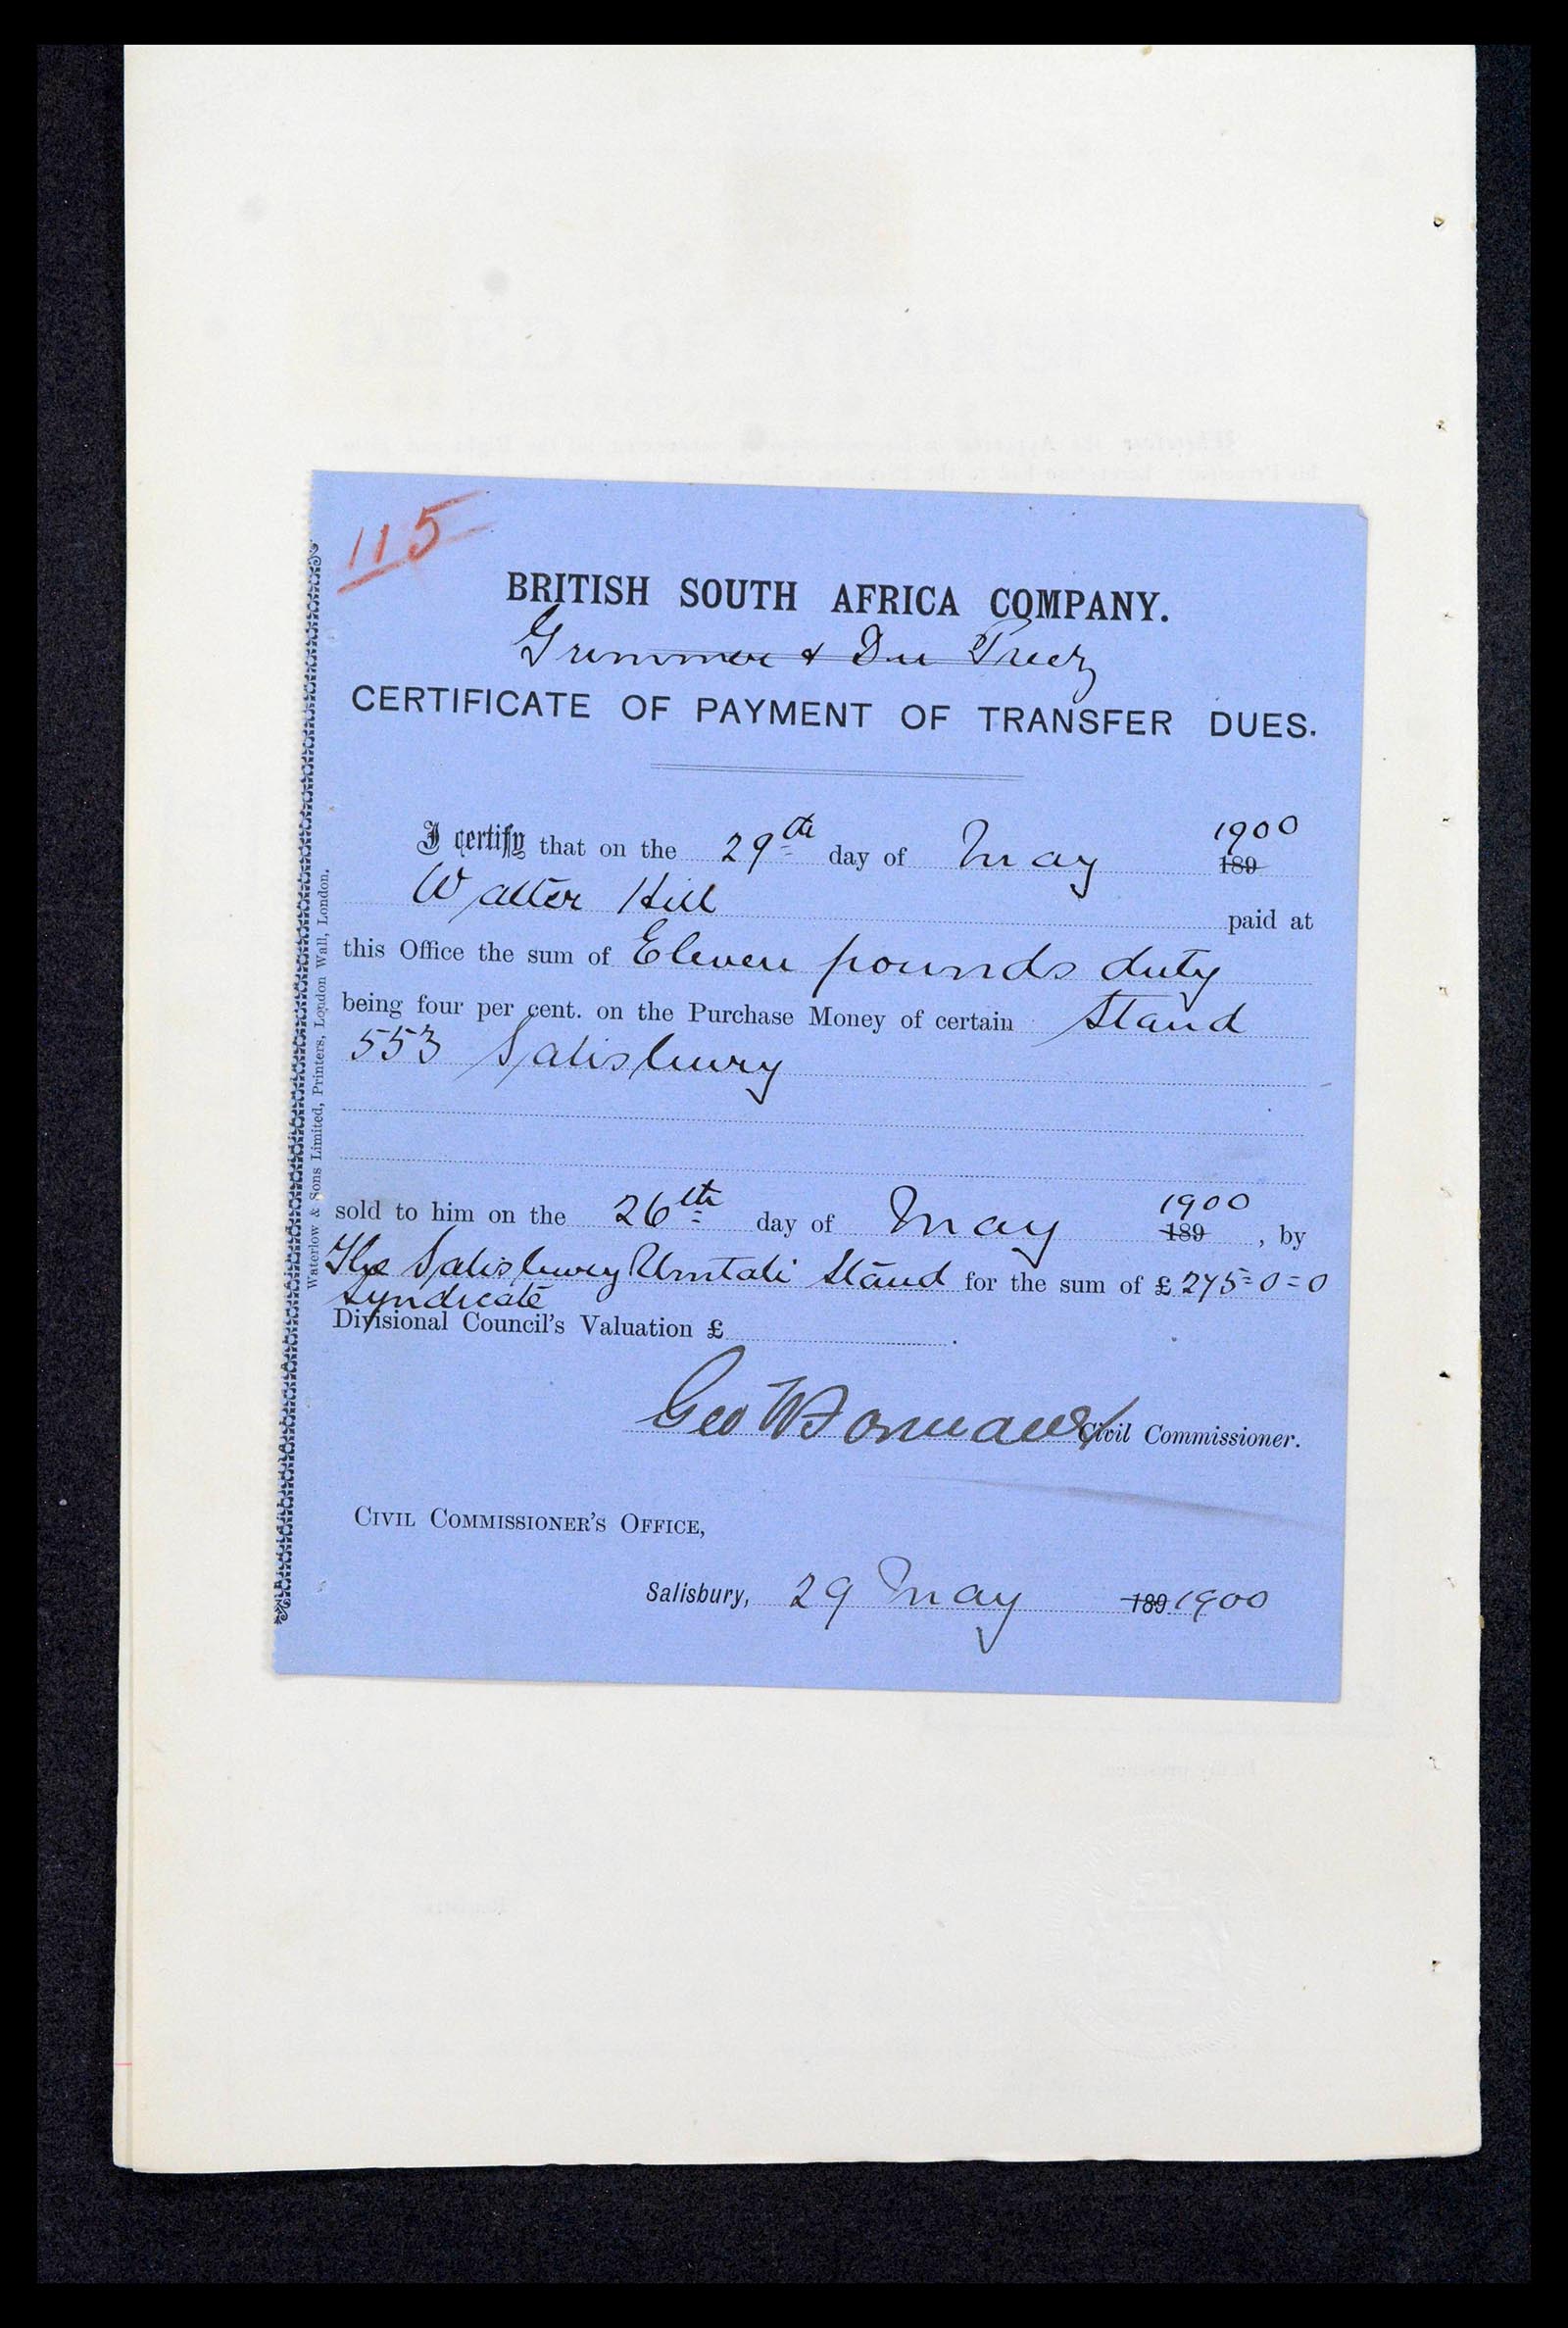 115
BRITISH SOUTH AFRICA COMPANY.
Grimmer & Du Preez
CERTIFICATE OF PAYMENT OF TRANSFER DUES.
I certify that on the 29th day of May 1900 189
Walter Hill paid at
this Office the sum of Eleven pounds duty
being four per cent. on the Purchase Money of certain Stand
553 Salisbury
sold to him on the 26th day of May 1900 189 , by
The Salisbury Umtali Stand for the sum of £ 275=0=0
Syndicate
Divisional Council's Valuation £ .
Geo Civil Commissioner.
CIVIL COMMISSIONER'S OFFICE,
Salisbury, 29 May 189 1900
Waterlow & Sons Limited, Printers, London Wall, London.